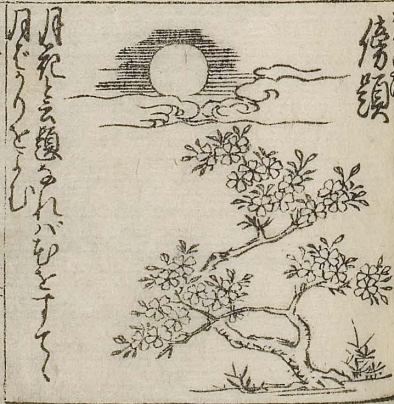 傍題
月花と云題なれバ花をすてゝ
月ばかりをよむ